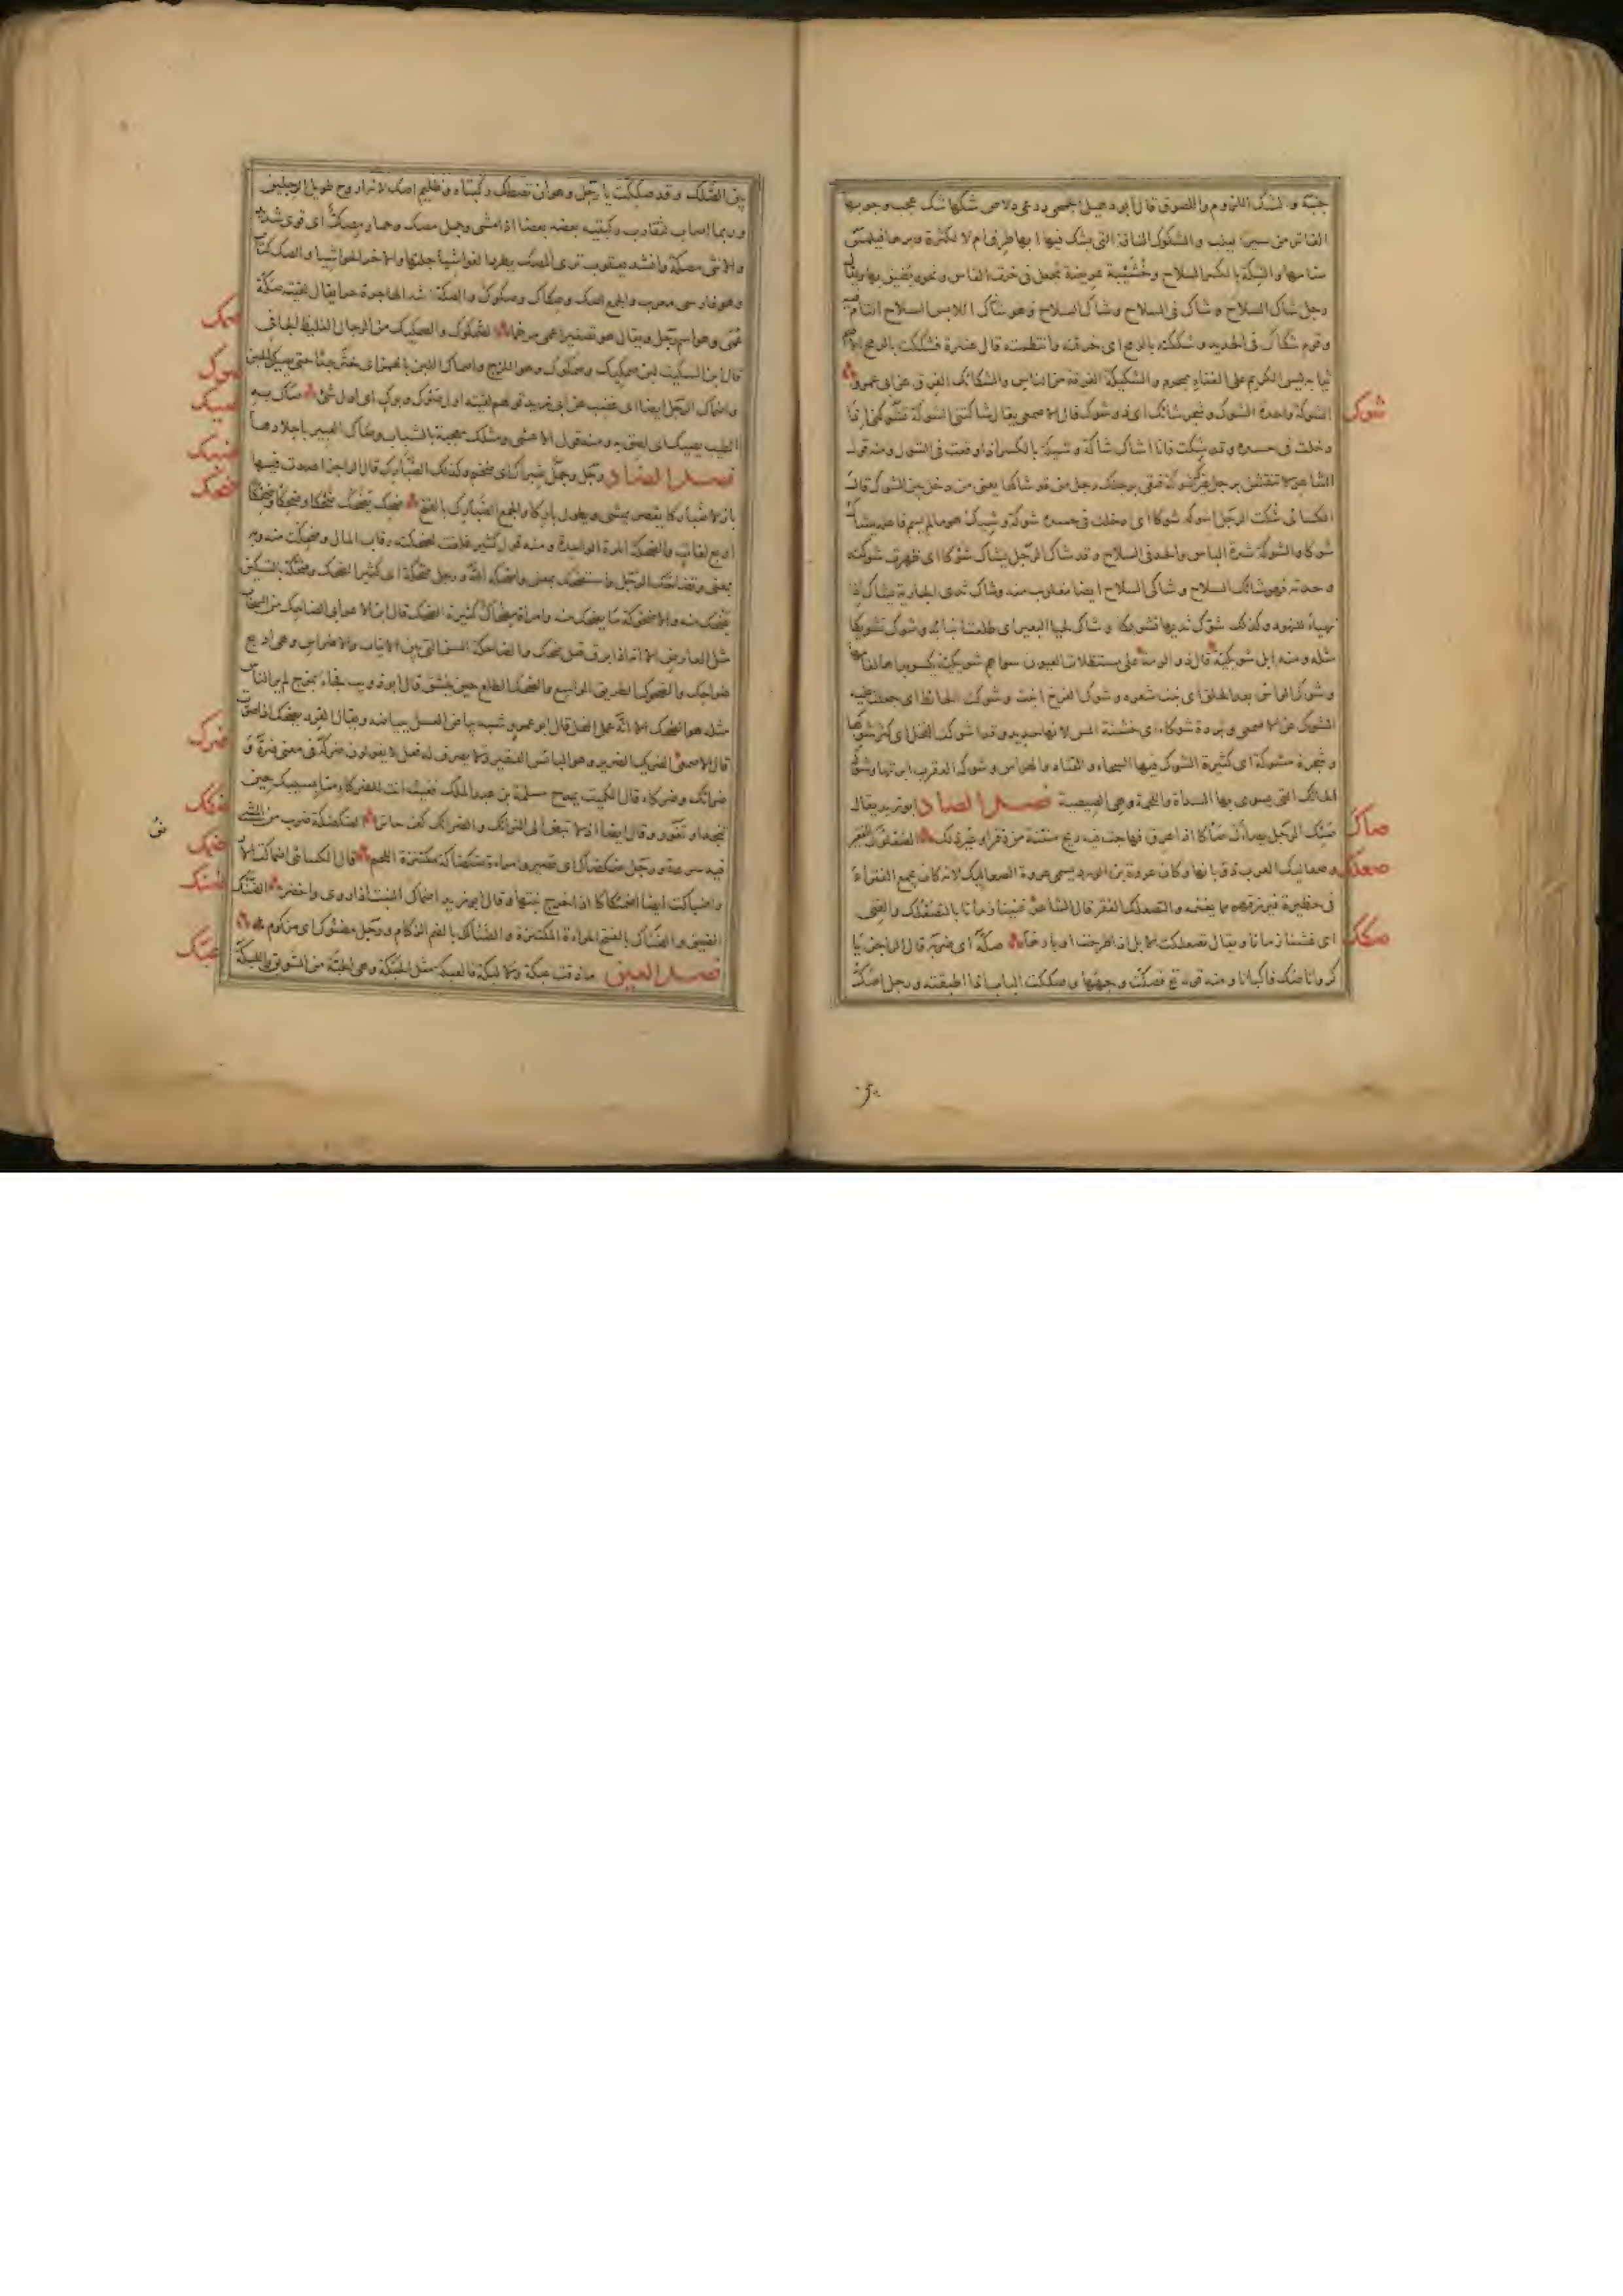 جنبه والشك اللزوم واللصوق قال أبو دهبل الجمحي درعي دلاص شكها شك عجب وجوبها
القاتر من سير اليلب والشكوك الناقة التي يشك فيها ابها طرق ام لا لكثرة وبرها فيلمس
سنامها والشكة بالكسر السلاح وخشيبة عريضة تجعل في خرت الفاس ونحوه يضيق بها ويقال
رجل شاك السلاح وشاك في السلاح وشاك السلاح وهو شاك اللابس السلاح التام فيه
وقوم شكاك في الحديد وشككته بالرمح اى خرقته وانتظمته قال عنترة فشككت بالرمح الاصم
ثيابه ليس الكريم على القنا بمحرم والشكيكة الفرقة من الناس والشكائك الفرق عن ابي عمرو
شوك الشوكة واحدة الشوك وشجر شائك اى ذو شوك قال الاصمعي يقال شاكتني الشوكة تشوكني اذا
دخلت في جسده وقد شكت فانا اشاك شاكة وشيكة بالكسر اذا وقعت في الشوك ومنه قول
الشاعر لا تنقشن برجل غيرك شوكة فتقى برجلك رجل من قد شاكها يعني من دخل بين الشوك قال
الكسائي شكت الرجل اشوكه شوكا اى ادخلت في جسده شوكة وشيك هو ما لم يسم فاعله يشاك
شوكا والشوكة شدة الباس والحد في السلاح وقد شاك الرجل يشاك شوكا اى ظهرت شوكته
وحدته فهو شائك السلاح وشاكي السلاح ايضا مقلوب منه وشاك ثدي الجارية يشاك اذا
تهيا للنهود وكذلك شوك ثديها تشويكا وشاك لحيا البعير اى طلعت انيابه وشوك تشويكا
مثله ومنه ابل شويكية قال ذو الرمة على مستظلات العيون سواهم شويكية يكسو براها لغامها
وشوك الراس بعد الحلق اى نبت شعره وشوك الفرخ انبت وشوكت الحائط اى جعلت عليه
الشوك عن الاصمعي وبردة شوكاء اى خشنة المس لانها جديد وقد اشوكت النخل اى كثر شوكها
وشجرة مشوكة اى كثيرة الشوك فيها السحاء والقتاد والهراس وشوكة العقرب ابرتها وشوكة
الحائك التي يسوى بها السداة واللحمة وهي الصيصية فصل الصاد ابو زيد يقال
صاك صئك الرجل يصاك صأكا اذا عرق فهاجت منه ريح منتنة من ذفر او غير ذلك الصعلوك الفقير
صعلك وصعاليك العرب ذؤبانها وكان عروة بن الورد يسمى عروة الصعاليك لانه كان يجمع الفقراء
في حظيرة فيرزقهم مما يغنمه والتصعلك الفقر قال الشاعر غنينا زمانا بالتصعلك والغنى
صكك اى عشنا زمانا ويقال تصعلكت الابل اذا طرحت اوبارها صكه اى ضربه قال الراجز يا
كروانا صك فاكبانا ومنه قوله تع فصكت وجهها وصككت الباب اى اطبقته ورجل اصك
بين الصكك وقد صككت يا رجل وهو ان تصطك ركبتاه وظليم اصك لانه ارح طويل الرجلين
وربما اصاب لتقارب ركبتيه بعضه بعضا اذا مشى وجمل مصك وحمار مصك اى قوى شديد
والانثى مصكة وانشد يعقوب ترى المصك يطرد العواشيا جلتها والاخر الحواشيا والصك كتاب
وهو فارسي معرب والجمع اصك وصكاك وصكوك والصكة اشد الهاجرة حرا يقال لقيته صكة
صمك عمى وهو اسم رجل ويقال هو تصغير اعمى مرخما الصمكوك والصمكيك من الرجال الغليظ الجافى
قال ابن السكيت لبن صمكيك وصمكوك وهو اللزج واصماك اللبن بالهمز اى خثر جدا حتى يصير كالجبن
صوك واصماك الرجل ايضا اى غضب عن ابي زيد قولهم لقيته اول صوك وبوك اى اول شئ
صيك صاك به
الطيب يصيك اى لصق به ومنه قول الاعشى ومثلك معجبة بالشباب وصاك العبير باجلادها
ضبك فصل الضاد رجل وجمل ضبارك اى ضخم وكذلك الضبارك قال الراجز اعددت فيها
ضحك بازلا ضباركا يقصر يمشي ويطول باركا والجمع الضبارك بالفتح ضحك يضحك ضحكا وضحكا وضحكا
اربع لغات والضحكة المرة الواحدة ومنه قول كثير غلقت لضحكته رقاب المال وضحكت منه وبه
بمعنى وتضاحك الرجل واستضحك بمعنى واضحكه الله ورجل ضحكة اى كثير الضحك وضحكة بالتسكين
يضحك منه والاضحوكة ما يضحك منه وامراة مضحاك كثيرة الضحك قال ابن الاعرابي الضاحك من السحاب
مثل العارض الا انه اذا برق قيل ضحك والضاحكة السن التي بين الانياب والاضراس وهي اربع
ضواحك والضحوك الطريق الواسع والضحك الطلع حين ينشق قال ابو ذؤيب فجاء بمزج لم ير الناس
مثله هو الضحك الا انه عمل النحل قال ابو عمرو شبه بياض العسل ببياضه ويقال القرد يضحك اذا صوت
ضرك قال الاصمعي الضريك الضرير وهو البائس الفقير ولا يصرف له فعل لا يقولون ضركه في معنى ضره و
ضرائك وضركاء قال الكميت يمدح مسلمة بن عبد الملك فغيث انت للضركاء منا بسيبك حين
ضكك تنجد او تغور وقال ايضا اذ لا تبض الى الترائك والضرائك كف حاتر الضكضكة ضرب من المشي
ضمك فيه سرعة ورجل ضكضاك اى قصير وامراة ضكضاكة مكتنزة اللحم قال الكسائي اضماكت الارض
ضنك واضباكت ايضا اضمئكاكا اذا خرج نبتها وقال ابو زيد اضماك النبت اذا روى واخضر الضنك
الضيق والضناك بالفتح المراة المكتنزة والضناك بالضم الزكام ورجل مضنوك اى مزكوم
عبك فصل العين ما ذقت عبكة ولا لبكة فالعبكة مثل الحبكة وهي الحبة من السويق واللبكة